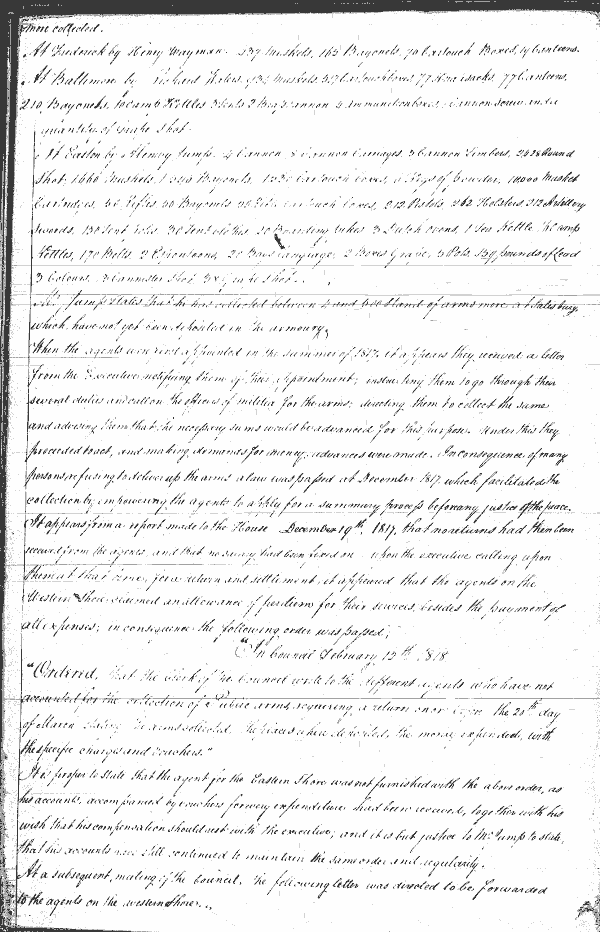 more collected.
At Frederick by Henry Wayman. 237 Muskets, 165 Bayonets, 70 Cartouch Boxes, 19 Canteens.
At Baltimore by Richard Waters, 934 Muskets, Cartouch boxes 77 Knapsacks, 77 Canteens,
210 Bayonets, 16 Camp Kettles 3 tents 2 Brass Cannon 4 ammunition boxes, 1 Cannon screw and a
quantity of Grape Shot.
At Easton by Henry Jump. 4 Cannon, Cannon Carriages, 3 Cannon Limbers, 2628 Round
Shot, 1666 Muskets, Bayonets, Cartouch boxes, Kegs of powder, 14000 Musket
Cartridges, Rifles 20 Bayonets Cartouch boxes, 212 Pistols, 262 Holsters, 212 Artillery
Swords, 130 Tent Poles, 30 Tent cloths 20 Boarding Pikes 3 Dutch ovens, 1 Tea Kettle, Camp
Kettles, 170 Belts, 2 Espontoons, 20 Boxes Language, 2 Boxes Grape, 5 Pots, 539 pounds of Lead
3 Colours, Cannister Shot, Grape Shot.
Mr. Jump states that he has collected between 4 and 500 Stand of arms more at Salisbury,
which have not yet been deposited in the armoury.
When the agents were first appointed in the summer of 1817, it appears they received a letter
from the Executive notifying them of their appointment; instructing them to go through their
several duties and call on the officers of militia for the arms; directing them to collect the same
and advising them that the necessary sums would be advanced for this purpose. Under this they
proceeded to act, and making demands for money, advances were made. In consequence of many
persons refusing to deliver up the arms a law was passed at December 1817, which facilitated the
collection by empowering the agents to apply for a summary process before any justice of the peace.
It appears from a report made to the House December 19th. 1817, that no returns had then been
received from the agents, and that no salary had been fixed on. upon the executive calling upon
them at that time, for a return and settlement, it appeared that the agents on the
Western Shore claimed an allowance of per diem for their services, besides the payment of
all expenses; in consequence the following order was passed;
"In Council February 13th. 1818
"Ordered, that the Clerk of the Council write to the different agents who have not
accounted for the collection of Public arms, requiring a return on or before the 20th day
of March stating the arms collected, the places where deposited, the money expended, with
the specific charges and vouchers."
It is proper to state that the agent for the Eastern Shore was not furnished with the above order, as
his accounts, accompanied by vouchers for every expenditure had been received, together with his
wish that his compensation should rest with the executive; and it is but justice to Mr Jump to state,
that his accounts have still continued to maintain the same order and regularity.
At a subsequent meeting of the Council, the following letter was directed to be forwarded
to the agents on the western Shore.